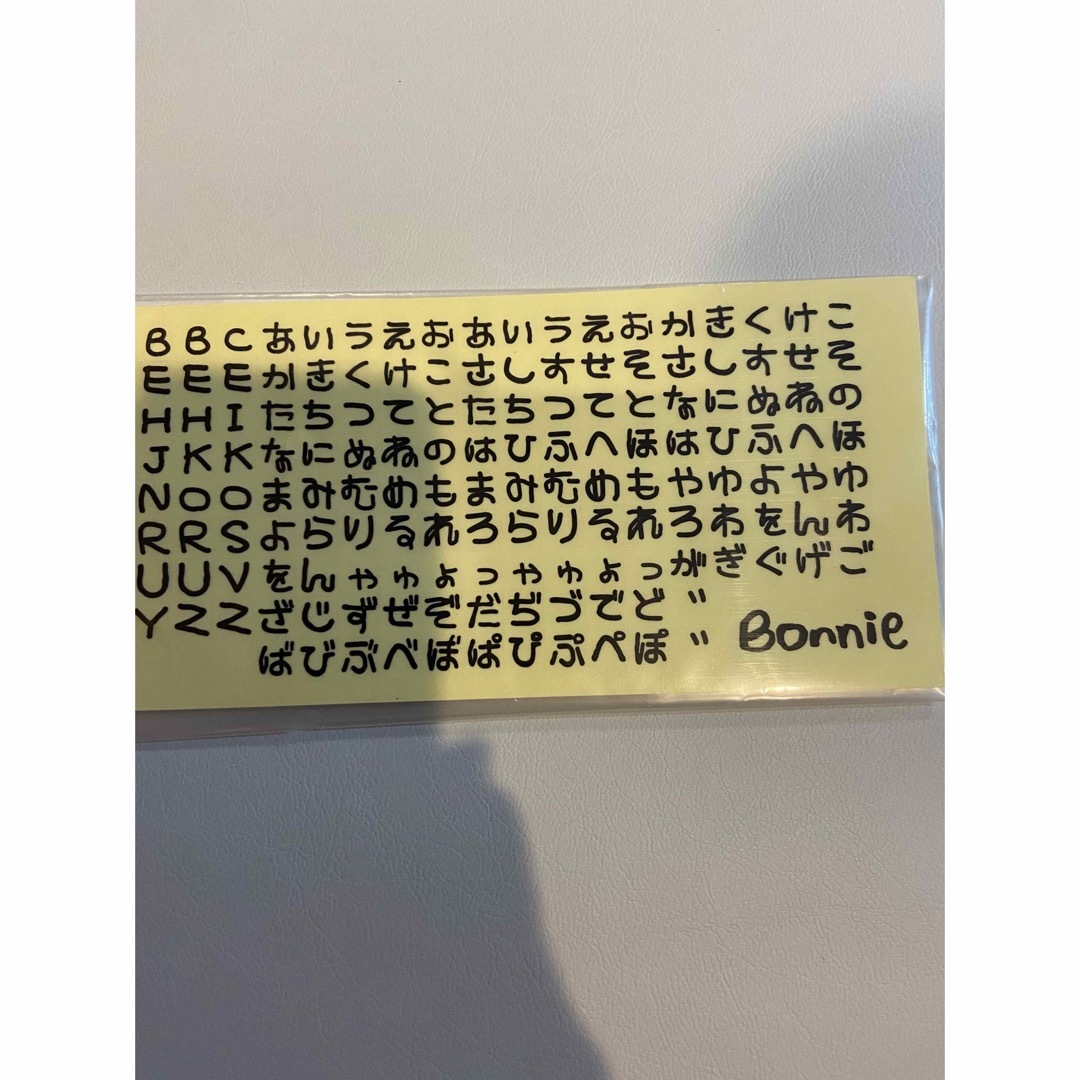 B B C あいうえおあいうえおかきくけこ
E E E かきくけこさしすせそさしすせそ
H H I たちつてとたちつてとなにぬねの
J K K なにぬねのはひふへほはひふへほ
N O O まみむめもまみむめもやゆよやゆ
R R S よらりるれろらりるれろわをんわ
U U V をんゃゅょっゃゅょっがぎぐげご
Y Z Z ざじずぜぞだぢづでど〃
ばびぶべぼぱぴぷぺぽ〃
Bonnie